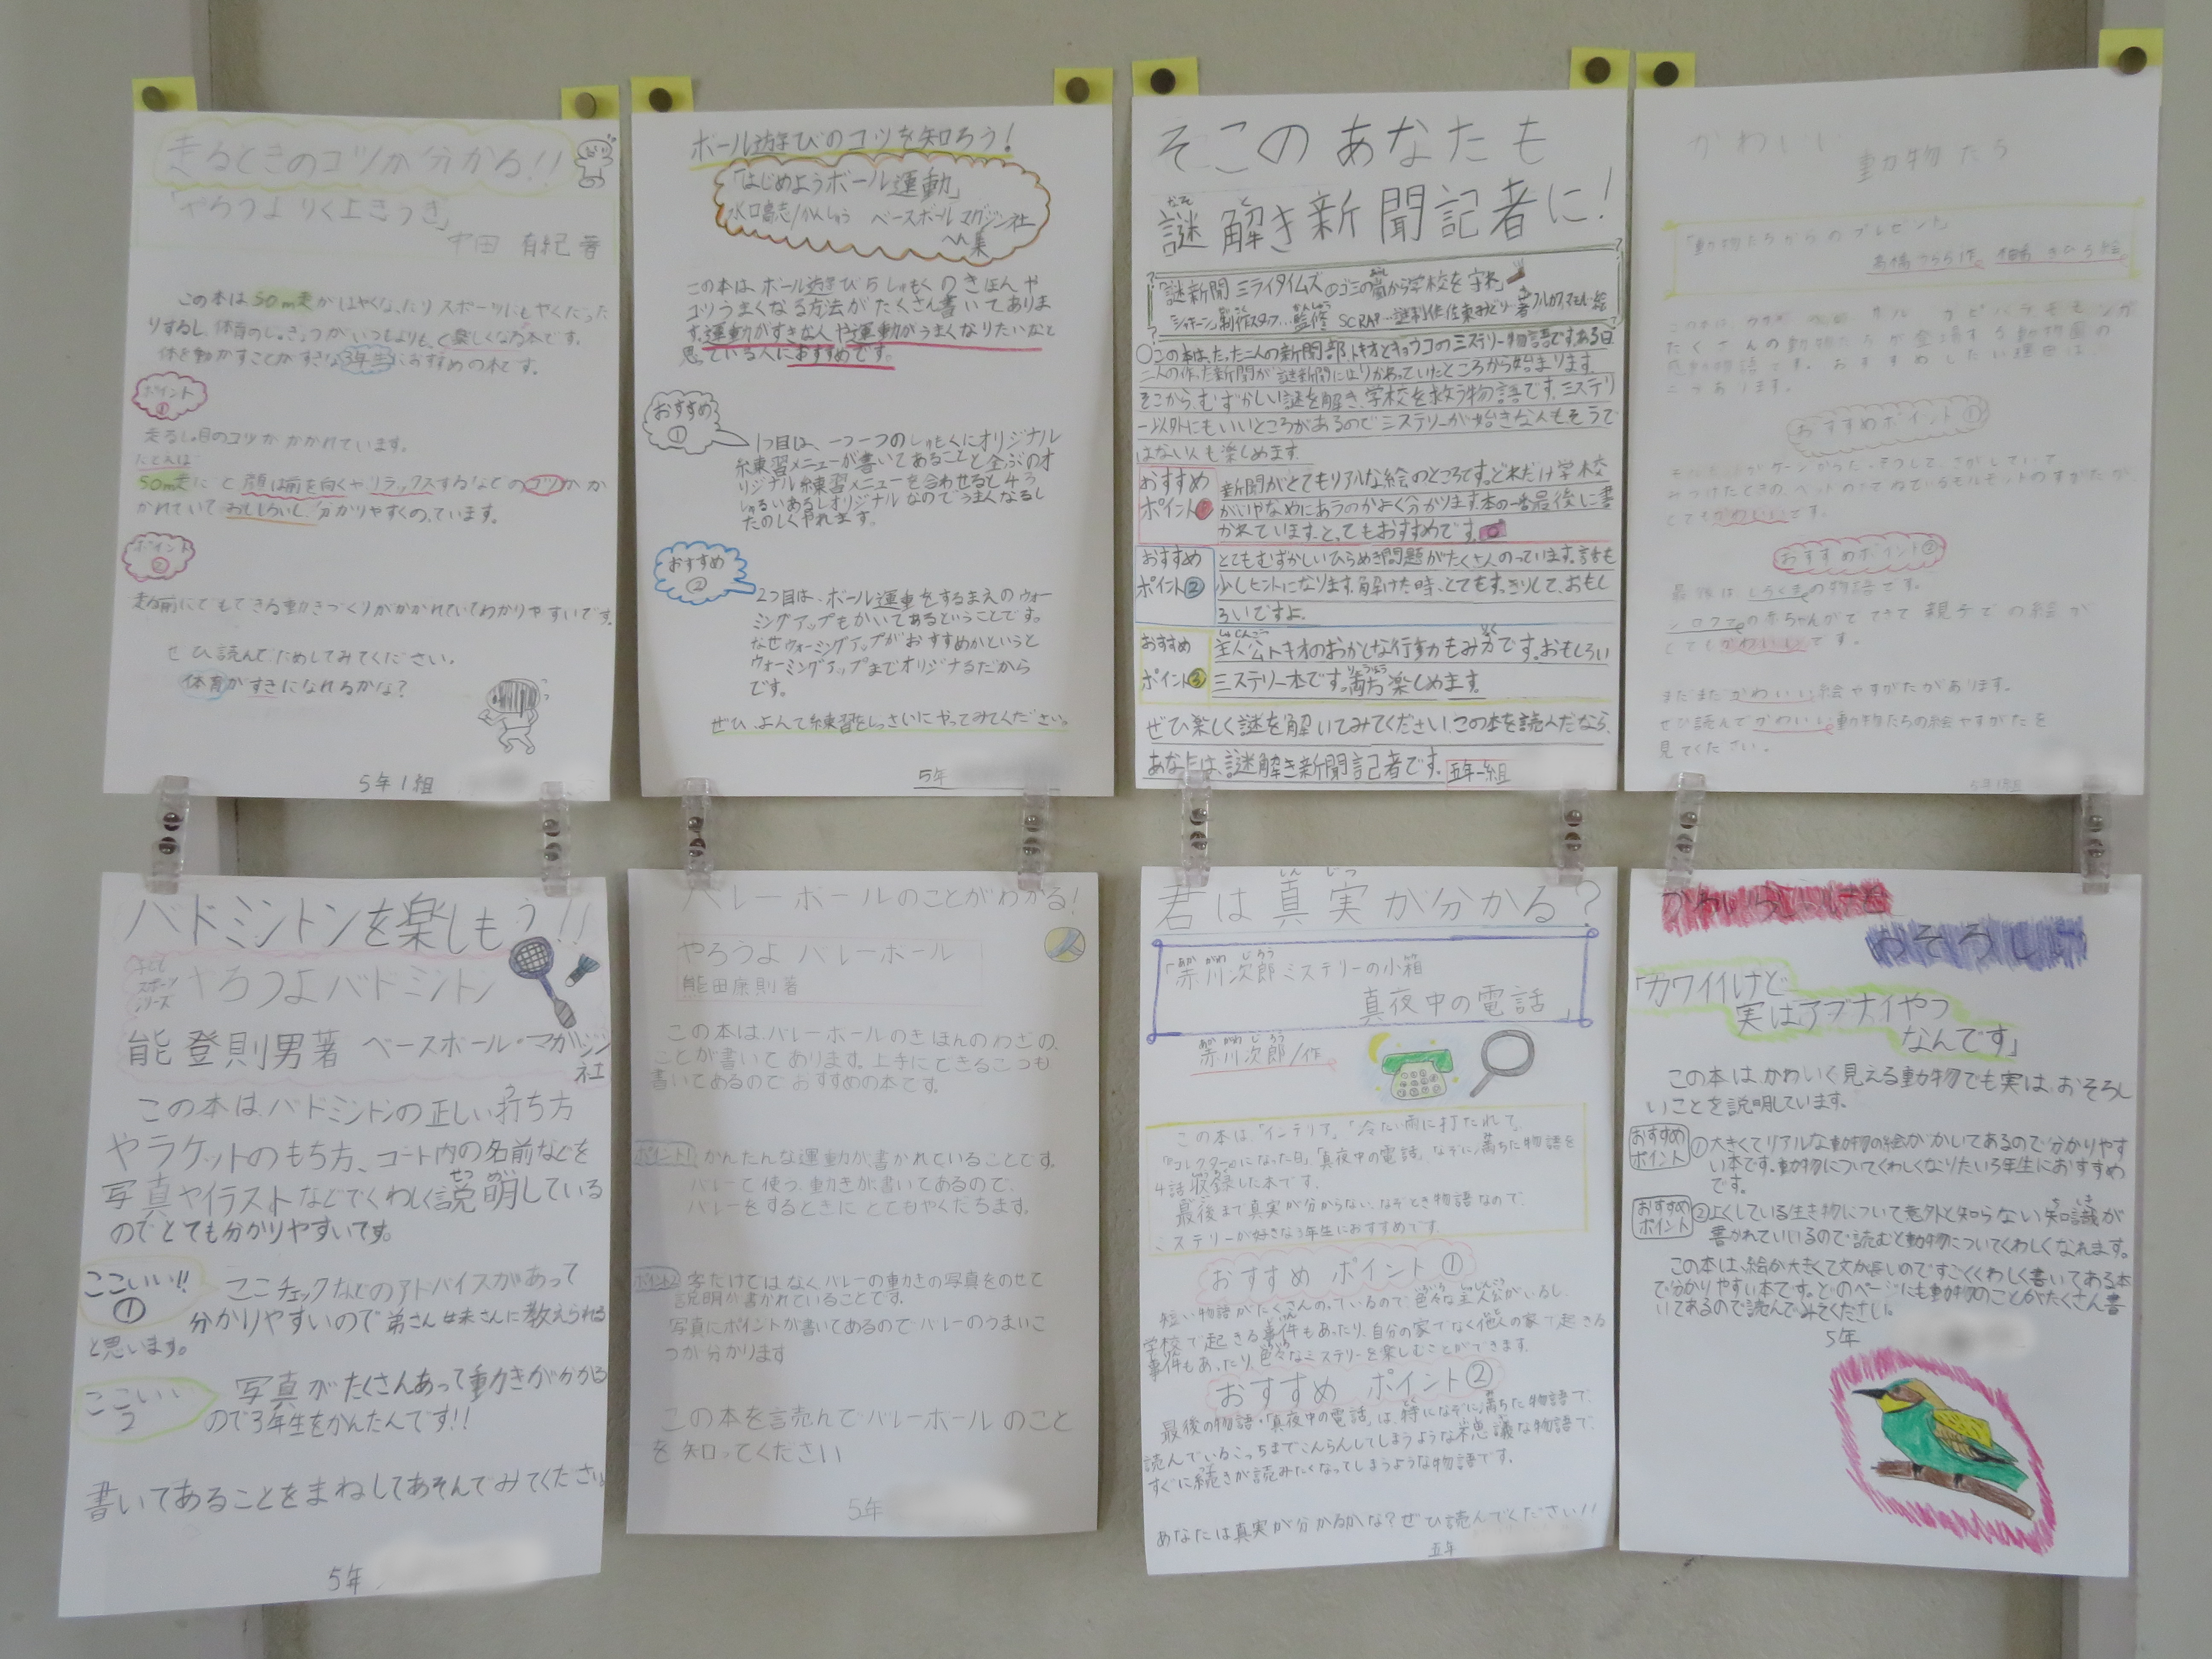 走るときのコツが分かる!!
「やろうよ りく上きょうぎ」
有紀 著
この本は50m走がはやくなったりスポーツにもやくだった
りするし、体育のじゅぎょうがいつもよりもっと楽しくなる本です。
体を動かすことがすきな3年生におすすめの本です。
ポイント
①
走るしゅ目のコツがかかれています。
たとえば
50m走だと顔は前を向くや、リラックスするなどのコツがか
かれていておもしろいし、分かりやすくのっています。
ポイント
②
走る前にでもできる動きづくりがかかれていてわかりやすいです。
ぜひ読んでためしてみてください。
体育がすきになれるかな?
5年1組
ボール遊びのコツを知ろう!
「はじめようボール運動」
水口高志/かんしゅう ベースボールマガジン社
編集
この本は、ボール遊び5しゅもくのきほんや
コツうまくなる方法がたくさん書いてありま
す。運動がすきな人や運動がうまくなりたいなと
思っている人におすすめです。
おすすめ
①
1つ目は、一つ一つのしゅもくにオリジナル
練習メニューが書いてあることと全ぶのオ
リジナル練習メニューを合わせると45
しゅるいあるしオリジナルなのでうまくなるし
たのしくやれます。
おすすめ
②
2つ目は、ボール運動をするまえのウォー
ミングアップもかいてあるということです。
なぜウォーミングアップがおすすめかというと
ウォーミングアップまでオリジナるだから
です。
ぜひ、よんで練習をじっさいにやってみてください。
5年
そこのあなたも
謎解き新聞記者に!
「謎新聞ミライタイムズ①ゴミの嵐から学校を守れ」
シャキーン!制作スタッフ…監修 SCRAP…謎制作 佐東みどり…著 フルカワマモル…絵
○この本は、たった二人の新聞部トキオとキョウコのミステリー物語です。ある日
二人の作った新聞が謎新聞に変わっていたところから始まります。
そこから、むずかしい謎を解き、学校を救う物語です。ミステリ
ー以外にもいいところがあるのでミステリーが好きな人もそうで
はない人も楽しめます。
おすすめ
ポイント①
新聞がとてもリアルな絵のところです。どれだけ学校
がいやなめにあうのかよく分かります。本の一番最後に書
かれています。とってもおすすめです。
おすすめ
ポイント②
とてもむずかしいひらめき問題がたくさんのっています。話も
少しヒントになります。解けた時、とてもすっきりして、おもし
ろいですよ。
おすすめ
ポイント③
主人公トキオのおかしな行動もみ力です。おもしろい
ミステリー本です。両方楽しめます。
ぜひ楽しく謎を解いてみてください。この本を読んだなら、
あなたは、謎解き新聞記者です。 五年一組
かわいい
動物たち
「動物たちからのプレゼント」
高橋うらら作 柚希きひろ絵
たくさんの動物たちが登場する動物園の
感動物語です。おすすめしたい理由は
二つあります。
おすすめポイント①
とてもかわいいです。
おすすめポイント②
最後はしろくまの物語です。
シロクマの赤ちゃんがでてきて親子での絵が
とてもかわいいです。
まだまだかわいい絵やすがたがあります。
ぜひ読んでかわいい動物たちの絵やすがたを
見てください。
5年1組
バドミントンを楽しもう!!
子ども
スポーツ
シリーズ
やろうよバドミントン
能登則男著 ベースボール・マガジン
社
この本は、バドミントンの正しい打ち方
やラケットのもち方、コート内の名前などを
写真やイラストなどでくわしく説明している
のでとても分かりやすいです。
ここいい!!
①
ここチェックなどのアドバイスがあって
分かりやすいので弟さん妹さんに教えられる
と思います。
ここいい
2
写真がたくさんあって動きが分かる
ので3年生をかんたんです!!
書いてあることをまねしてあそんでみてください
5年
バレーボールのことがわかる!
やろうよ バレーボール
能田康則著
この本は、バレーボールのきほんのわざの、
ことが書いてあります。上手にできるこつも
書いてあるのでおすすめの本です。
ポイント1
かんたんな運動が書かれていることです。
バレーで使う、動きが書いてあるので、
バレーをするときにとてもやくだちます。
ポイント2
字だけではなくバレーの動きの写真をのせて
説明が書かれていることです。
写真にポイントが書いてあるのでバレーのうまいこ
つが分かります
この本を読んでバレーボールのこと
を知ってください
5年
君は真実が分かる?
「赤川次郎ミステリーの小箱
真夜中の電話」
赤川次郎/作
この本は、「インテリア」、「冷たい雨に打たれて」、
「『コレクター』になった日」「真夜中の電話」、なぞに満ちた物語を
4話収録した本です。
最後まで真実が分からない、なぞとき物語なので、
ミステリーが好きな3年生におすすめです。
おすすめ ポイント①
短い物語がたくさんのっているので、色々な主人公がいるし、
学校で起きる事件もあったり、自分の家でなく他人の家で起きる
事件もあったり、色々なミステリーを楽しむことができます。
おすすめ ポイント②
最後の物語・「真夜中の電話」は、特になぞに満ちた物語で、
読んでいるこっちまでこんらんしてしまうような不思議な物語で、
すぐに続きが読みたくなってしまうような物語です。
あなたは真実が分かるかな?ぜひ読んでください!!
五年
おそろしい
「カワイイけど
実はアブナイやつ
なんです」
この本は、かわいく見える動物でも実は、おそろし
いことを説明しています。
おすすめ
ポイント
①大きくてリアルな動物の絵がかいてあるので分かりやす
い本です。動物についてくわしくなりたい3年生におすすめ
です。
おすすめ
ポイント
②よくしている生き物について意外と知らない知識が
書かれていいるので読むと動物についてくわしくなれます。
この本は、絵が大きくて文が長いのですごくくわしく書いてある本
で分かりやすい本です。どのページにも動物のことがたくさん書
いてあるので読んでみてください。
5年